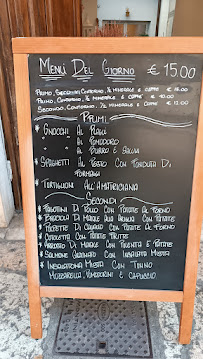 Menù Del Giorno € 15.00
Primo, Secondo, Contorno, ½ Minerale e Caffè € 15.00
Primo, Contorno, ½ Minerale e Caffè € 10.00
Secondo, Contorno, ½ Minerale e Caffè € 12.00
Primi
* Gnocchi Al
Al Pomodoro
Al Burro e Salvia
* Spaghetti Al Pesto Con Fonduta Di
Formaggi
* Tortiglioni All'Amatriciana
Secondi
Di Pollo Con Patate Al Forno
* Braciola Di Maiale Alla Griglia Con Patate
Di Cavallo Con Patate Al Forno
* Cotoletta Con Patate Fritte
* Arrosto Di Maiale Con Polenta e Patate
* Salmone Con Insalata Mista
* Insalatona Mista Con Tonno
Mozzarella, Pomodorini e